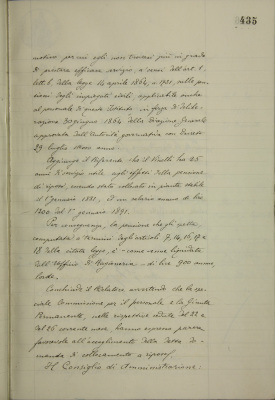 435
motivo per cui egli non trovasi più in grado
di prestare efficace servizio, a' sensi dell'art. 1
lett. b della legge 14 aprile 1864, n. 1731, sulle pen
sioni degli impiegati civili, applicabile anche
al personale di questo Istituto in forza di delibe
razione 30 giugno 1864 della Direzione Generale
approvata dall'Autorità governativa con Decreto
29 luglio stesso anno.
Aggiunge il Referente che il ha 25
anni di servizio utile agli effetti della pensione
di riposo, essendo stato collocato in pianta stabile
il 1° gennaio 1881, e un salario annuo di lire
dal 1° gennaio 1891.
Per conseguenza, la pensione che gli spetta
computata a termini degli articoli
18 della citata legge, è come venne liquidata
dall'Ufficio di Ragioneria di lire 900 annue
lorde.
Conchiude il Relatore avvertendo che la spe
ciale Commissione per il personale e la Giunta
Permanente, nelle rispettive sedute del 22 e
del 26 corrente mese, hanno espresso parere
favorevole all'accoglimento della detta do
manda di collocamento a riposo.
Il Consiglio di Amministrazione: